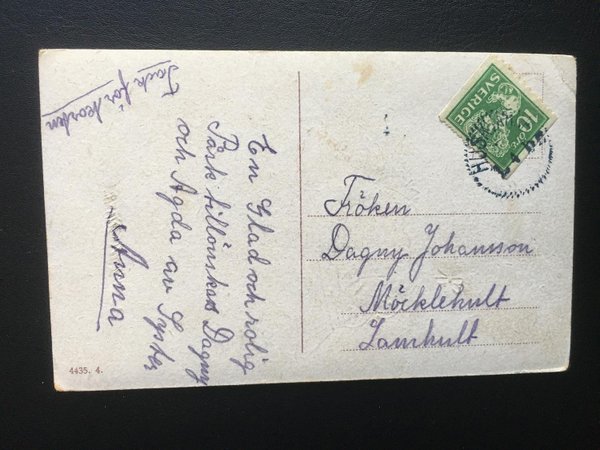 Tack för korten
En Glad och rolig
Påsk tillönskas Dagny
och Agda av Syster
Anna
4435. 4.
SVERIGE
10 ÖRE
Fröken
Dagny Johansson
Möcklehult
Lamhult